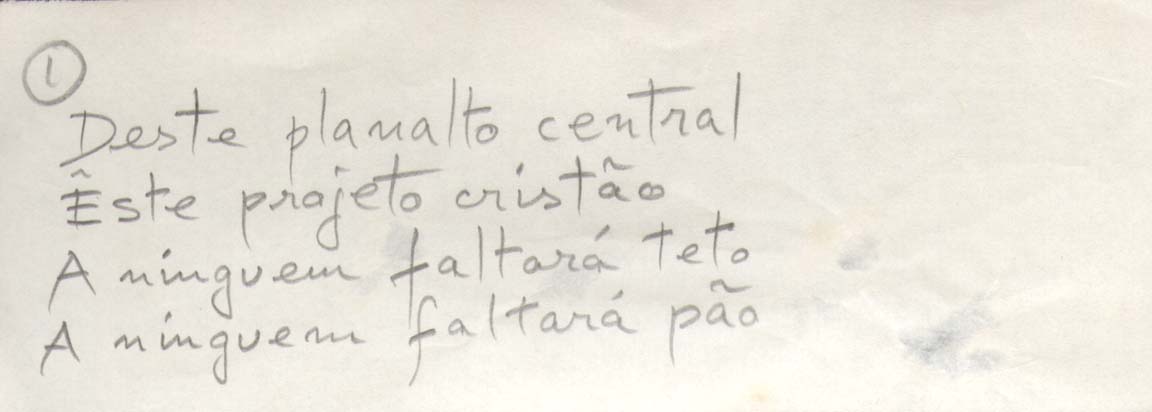 1
Deste planalto central
Êste projeto cristão
A ninguem faltará teto
A ninguem faltará pão